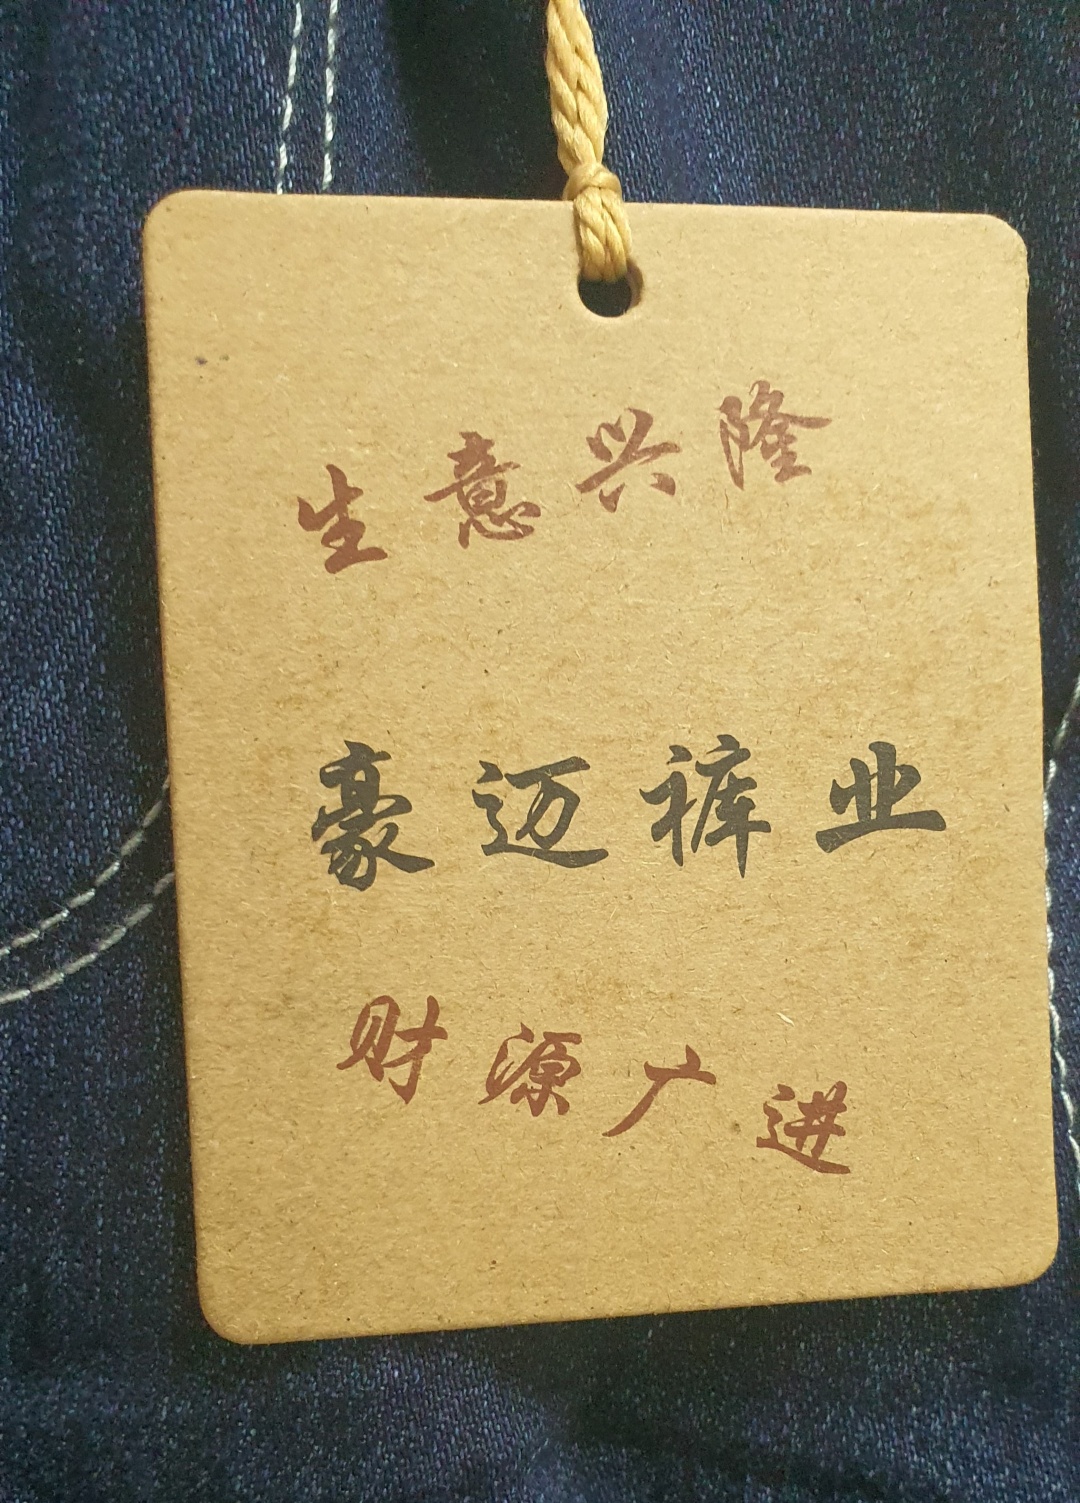 生意兴隆
豪迈裤业
财源广进